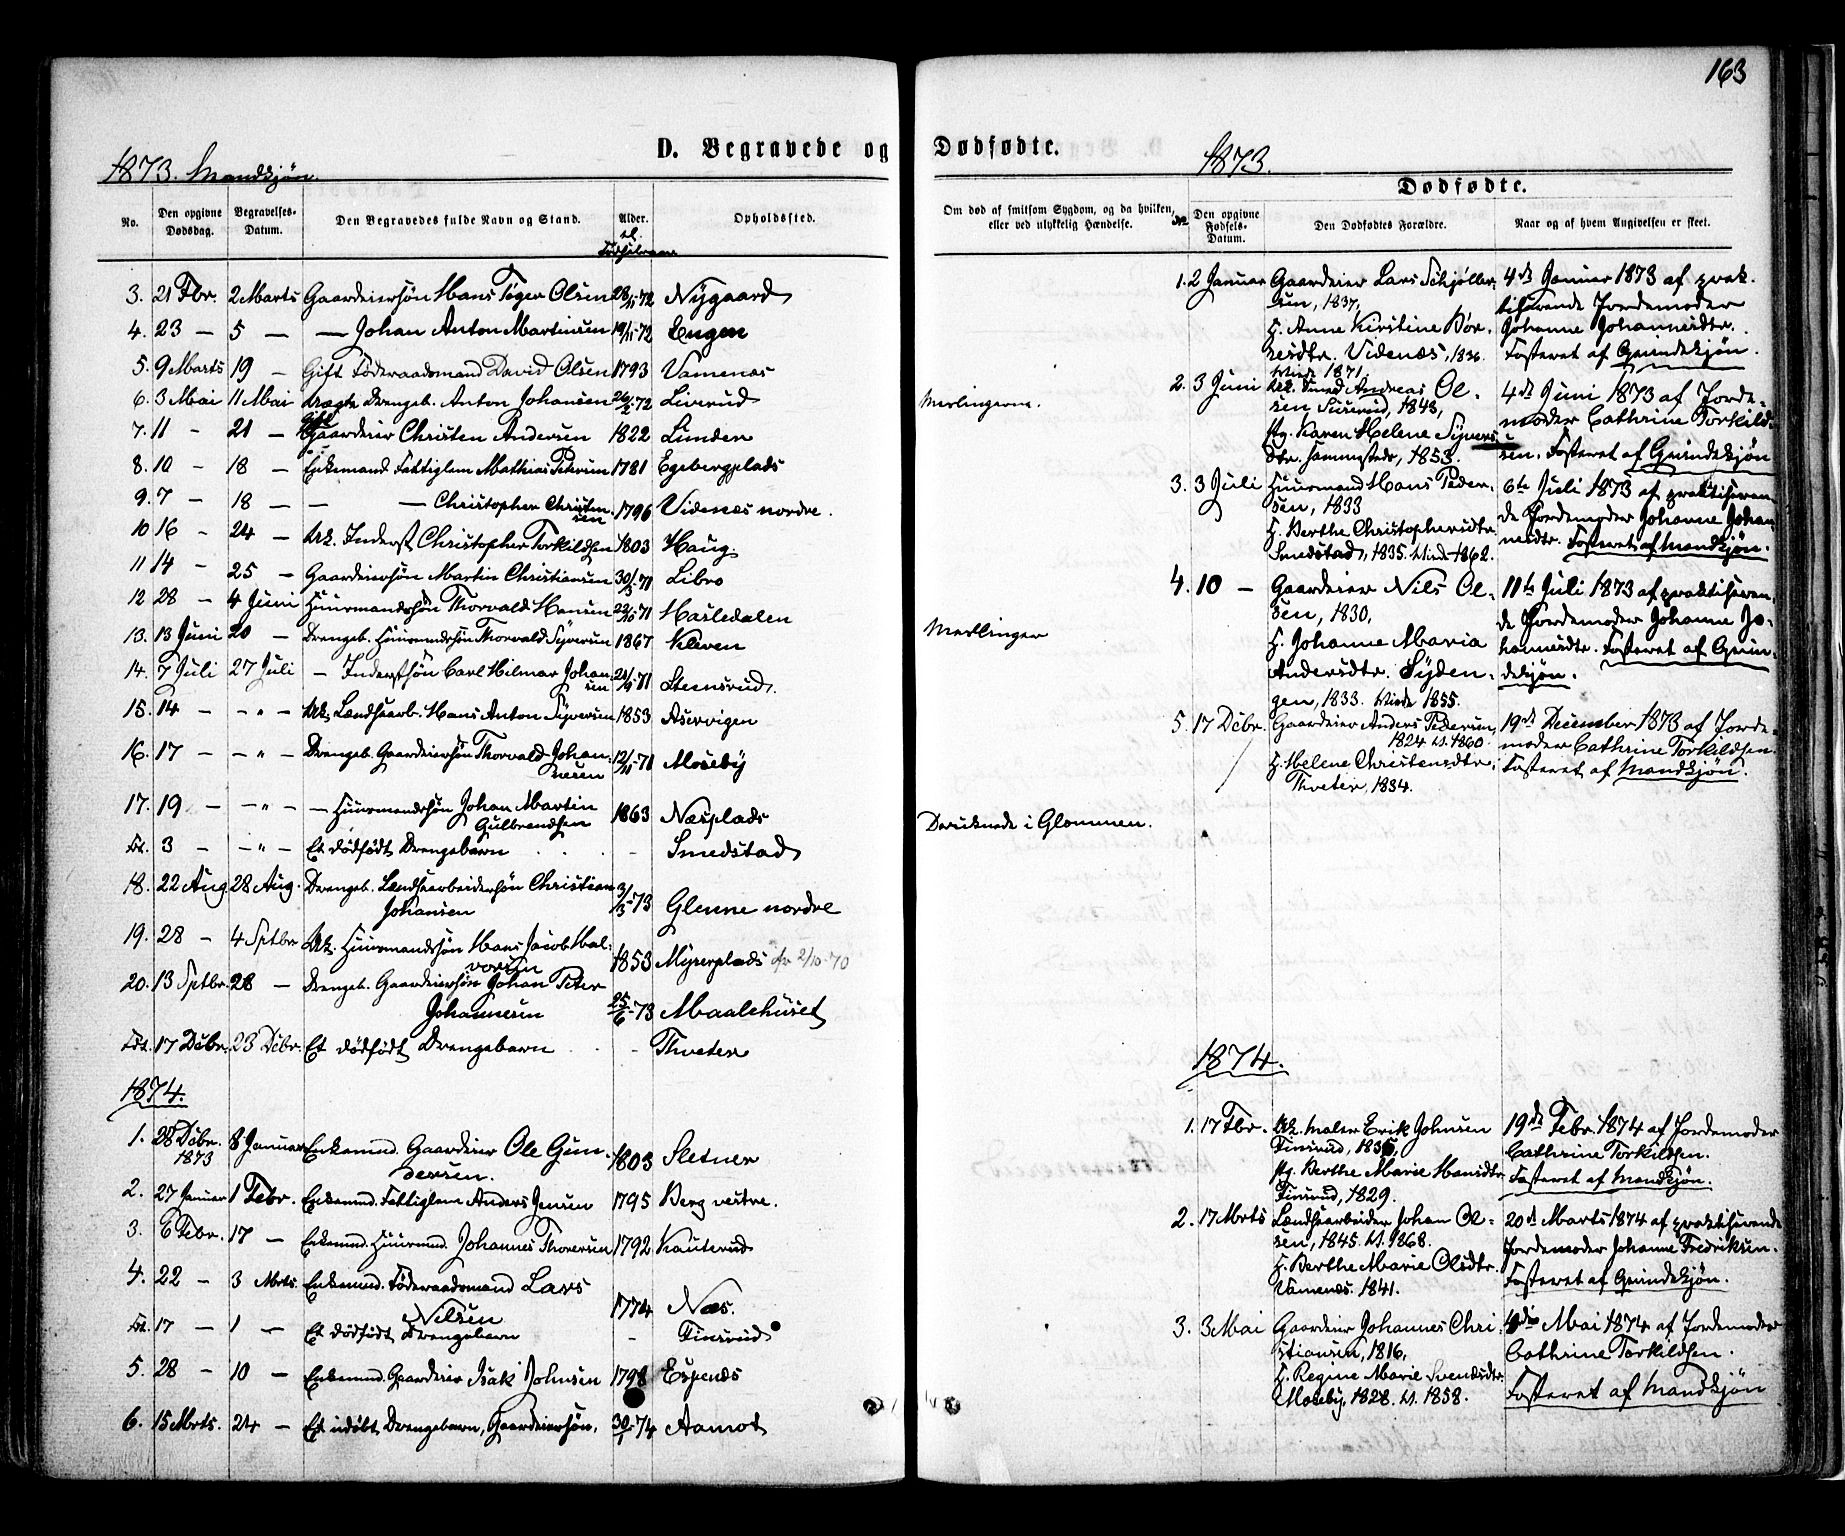 163
D. Begravede og Dødfødte.
1873. Mandkjøn.
No.
Den opgivne Dødsdag.
Begravelses-Datum.
Den Begravedes fulde Navn og Stand.
Alder.
el. Fødselsaar
Opholdssted.
3. 21 Fbr. 2 Marts Gaardeiersøn Hans Tøger Olsen 28/11-72 Nygaard
4. 23 — 5 — — Johan Anton Martinsen 19/11-72 Engen
5. 9 Marts 19 — Gift Føderaadsmand David Olsen 1793 Vamenæs
6. 3 Mai 11 Mai Uægte Drengeb. Anton Johansen 26/2-72 Liverud
7. 11 - 21 — Gift Gaardeier Christen Andersen 1822 Lunder
8. 10 - 18 — Enkemand Fattiglem Mathias Petersen 1781 Egebergplads
9. 7 — 18 — — — Christopher Christensen 1796 Videnæs nordre.
10 16 - 24 — Uk. Inderst Christopher Torkildsen 1803 Haug.
11 14 - 25 — Gaardeiersøn Martin Christiansen 30/3-71 Libro
12 28 - 4 Juni Huusmandssøn Thorvald Hansen 23/10-71 Hasledalen
13. 13 Juni 20 — Drengeb. Huusmandssøn Thorvald Syversen 1867 Kleven
14. 7 Juli 27 Juli — Inderstsøn Carl Hilmar Johansen 21/9-71 Steensrud.
15. 14 — - " - Uk. Landsarb. Hans Anton Syversen 1853 Aservigen
16. 17 — - " - Drengeb. Gaardeiersøn Thorvald Johannesen 12/11-71 Moseby
17. 19 — - " - — Huusmandssøn Johan Martin
Gulbrandsen 1863 Næsplads
Fbt. 3 — - " - Et dødfødt Drengebarn . . . - Smedstad
18. 22 Aug. 28 Aug. Drengeb. Landsarbeidersøn Christian
Johansen 3/3-73 Glenne nordre
19. 28 — 4 Sptbr Uk. Huusmandssøn Hans Jacob Halvorsen 1853 Myrerplads 2/10-70
20. 13 Sptbr. 28 — Drengeb. Gaardeiersøn Johan Peter
Johannesen 25/6-73 Maalehuset
Fbt. 17 Dcbr. 23 Dcbr. Et dødfødt Drengebarn . . - Thveter
1874.
1. 28 Dcbr. 1873 8 Januar Enkemnd. Gaardeier Ole Gundersen. 1803 Sletner
2. 27 Januar 1 Febr. Enkemnd. Fattiglem Anders Jensen 1795 Berg vestre.
3. 6 Febr. 17 — Enkemnd. Huusmnd. Johannes Thoresen 1792 Kauterud
4. 22 — 3 Mrts. Enkemnd. Føderaadsmand Lars
Nilsen 1774 Næs.
Fbt. 17 — 1 — Et dødfødt Drengebarn - Finsrud
5. 28 — 10 — Enkemnd. Gaardeier Isak Johnsen 1798 Espenæs
6. 15 Mrts. 24 — Et udøbt Drengebarn, Gaardeiersøn. 30/1-74 Aamot
1873.
Dødfødte.
Om død af smitsom Sygdom, og da hvilken, eller ved ulykkelig Hændelse.
Den opgivne Fødsels-Datum.
Den Dødfødtes Forældre.
Naar og af hvem Angivelsen er skeet.
Meslingerne.
Meslinger
Druknede i Glommen.
1. 2 Januar Gaardeier Lars Schjølbersen, 1837,
H. Anne Kirstine Børresdtr. Videnæs, 1836.
Viede 1871.
4de Januar 1873 af praktiserende Jordemoder
Johanne Johannesdtr.
Fosteret af Qvindekjøn.
2. 3 Juni Uk. Andreas Olsen Suserud, 1843,
Pg. Karen Helene Syversdtr. Sammestede, 1853.
4de Juni 1873 af Jordemoder Cathrine Torkildsen. Fosteret af Qvindekjøn
3. 3 Juli Huusmand Hans Pedersen, 1833
H. Berthe Christophersdtr.
Smedstad, 1835. Viede 1862.
6te Juli 1873 af praktiserende Jordemoder Johanne Johannesdtr. Fosteret af Mandkjøn.
4. 10 — Gaardeier Nils Olsen, 1830,
H. Johanne Maria
Andersdtr. Sydengen, 1833. Viede 1855.
11te Juli 1873 af praktiserende Jordemoder Johanne Johannesdtr. Fosteret af Qvindekjøn.
5. 17 Dcbr. Gaardeier Anders Pedersen,
1824 V. 1860.
H. Helene Christensdtr.
Thveter, 1834.
19de December 1873 af Jordemoder Cathrine Torkildsen.
Fosteret af Mandkjøn.
1874.
1. 17 Fbr. Uk. Maler Erik Johnsen
Finsrud, 1835,
Pg. Berthe Marie Hansdtr
Finsrud, 1829.
19de Febr. 1874 af Jordemoder
Cathrine Torkildsen.
Fosteret af Mandkjøn.
2. 17 Mrts Landsarbeider Johan Olsen, 1845. V. 1868.
H. Berthe Marie Olsdtr.
Vamenæs. 1841.
20de Marts 1874 af praktiserende
Jordemoder Johanne Fredriksen.
Fosteret af Qvindekjøn.
3. 3 Mai Gaardeier Johannes Christiansen, 1816,
H. Regine Marie Svendsdtr.
Moseby, 1828. V. 1858.
Mai 1874 af Jordemoder
Cathrine Torkildsen.
Fosteret af Mandkjøn